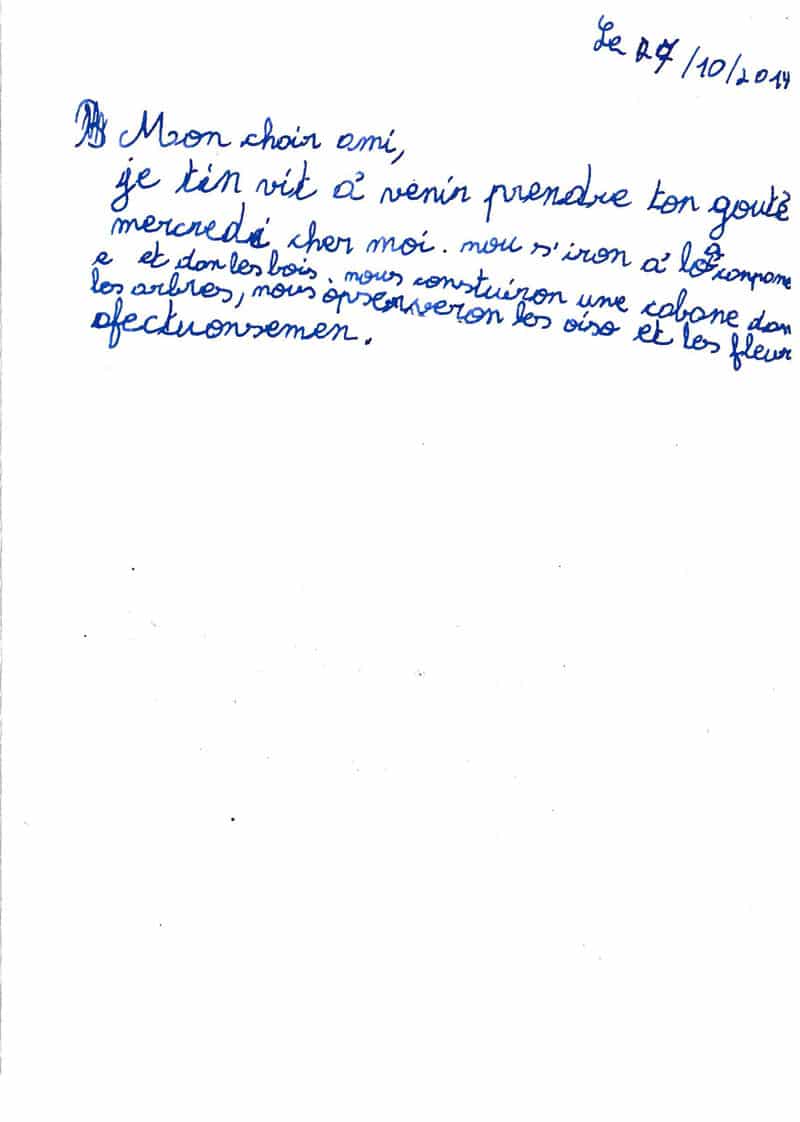 Le 27/10/2014
Mon chair ami,
je tin vit à venir prendre ton gouté
mercredi cher moi. nou s'iron à la conpane
e et dan les bois. nous constuiron une cabane dan
les arbres, nous opserveron les oiso et les fleur
afectuonsemen.